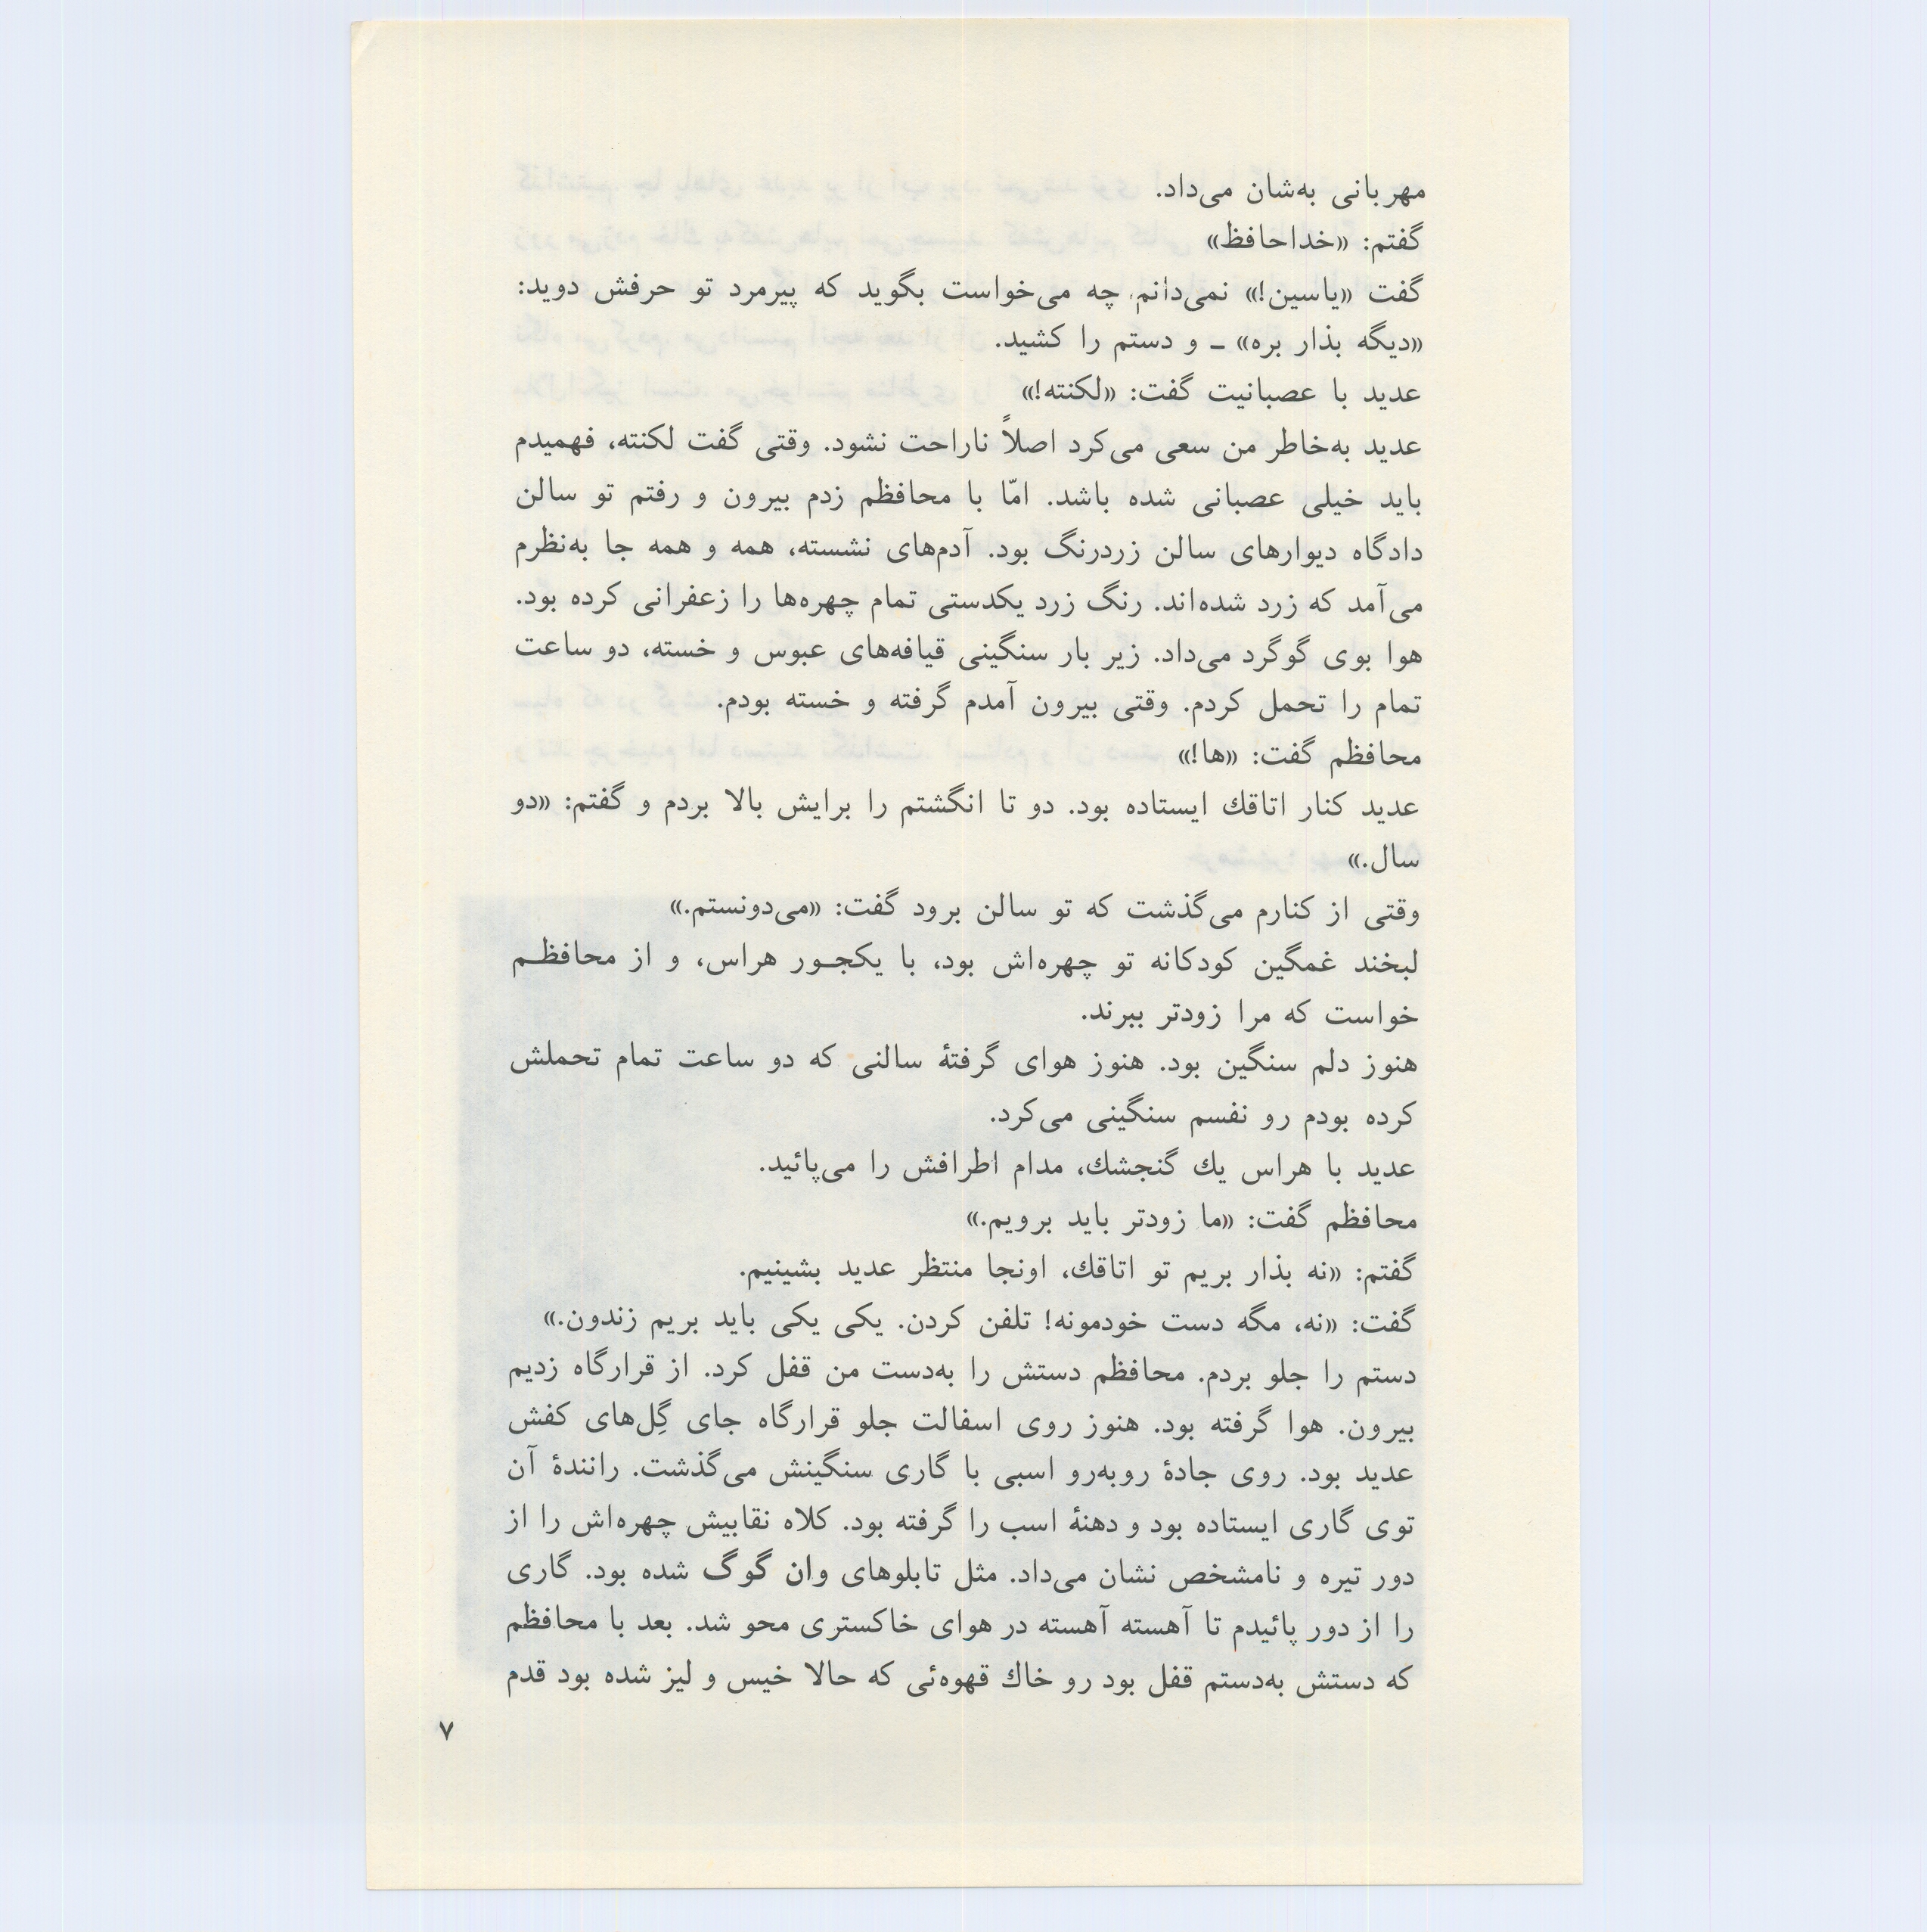 مهربانی به‌شان می‌داد.
گفتم: «خداحافظ»
گفت «یاسین!» نمی‌دانم، چه می‌خواست بگوید که پیرمرد تو حرفش دوید:
«دیگه بذار بره» ـ و دستم را کشید.
عدید با عصبانیت گفت: «لکنته!»
عدید به‌خاطر من سعی می‌کرد اصلاً ناراحت نشود. وقتی گفت لکنته، فهمیدم
باید خیلی عصبانی شده باشد. امّا با محافظم زدم بیرون و رفتم تو سالن
دادگاه دیوارهای سالن زردرنگ بود. آدم‌های نشسته، همه و همه جا به‌نظرم
می‌آمد که زرد شده‌اند. رنگ زرد یکدستی تمام چهره‌ها را زعفرانی کرده بود.
هوا بوی گوگرد می‌داد. زیر بار سنگینی قیافه‌های عبوس و خسته، دو ساعت
تمام را تحمل کردم. وقتی بیرون آمدم گرفته و خسته بودم.
محافظم گفت: «ها!»
عدید کنار اتاقك ایستاده بود. دو تا انگشتم را برایش بالا بردم و گفتم: «دو
سال.»
وقتی از کنارم می‌گذشت که تو سالن برود گفت: «می‌دونستم.»
لبخند غمگین کودکانه تو چهره‌اش بود، با یکجـور هراس، و از محافظـم
خواست که مرا زودتر ببرند.
هنوز دلم سنگین بود. هنوز هوای گرفتهٔ سالنی که دو ساعت تمام تحملش
کرده بودم رو نفسم سنگینی می‌کرد.
عدید با هراس یك گنجشك، مدام اطرافش را می‌پائید.
محافظم گفت: «ما زودتر باید برویم.»
گفتم: «نه بذار بریم تو اتاقك، اونجا منتظر عدید بشینیم.
گفت: «نه، مگه دست خودمونه! تلفن کردن. یکی یکی باید بریم زندون.»
دستم را جلو بردم. محافظم دستش را به‌دست من قفل کرد. از قرارگاه زدیم
بیرون. هوا گرفته بود. هنوز روی اسفالت جلو قرارگاه جای گِل‌های کفش
عدید بود. روی جادهٔ روبه‌رو اسبی با گاری سنگینش می‌گذشت. رانندهٔ آن
توی گاری ایستاده بود و دهنهٔ اسب را گرفته بود. کلاه نقابیش چهره‌اش را از
دور تیره و نامشخص نشان می‌داد. مثل تابلوهای وان گوگ شده بود. گاری
را از دور پائیدم تا آهسته آهسته در هوای خاکستری محو شد. بعد با محافظم
که دستش به‌دستم قفل بود رو خاك قهوه‌ئی که حالا خیس و لیز شده بود قدم
۷